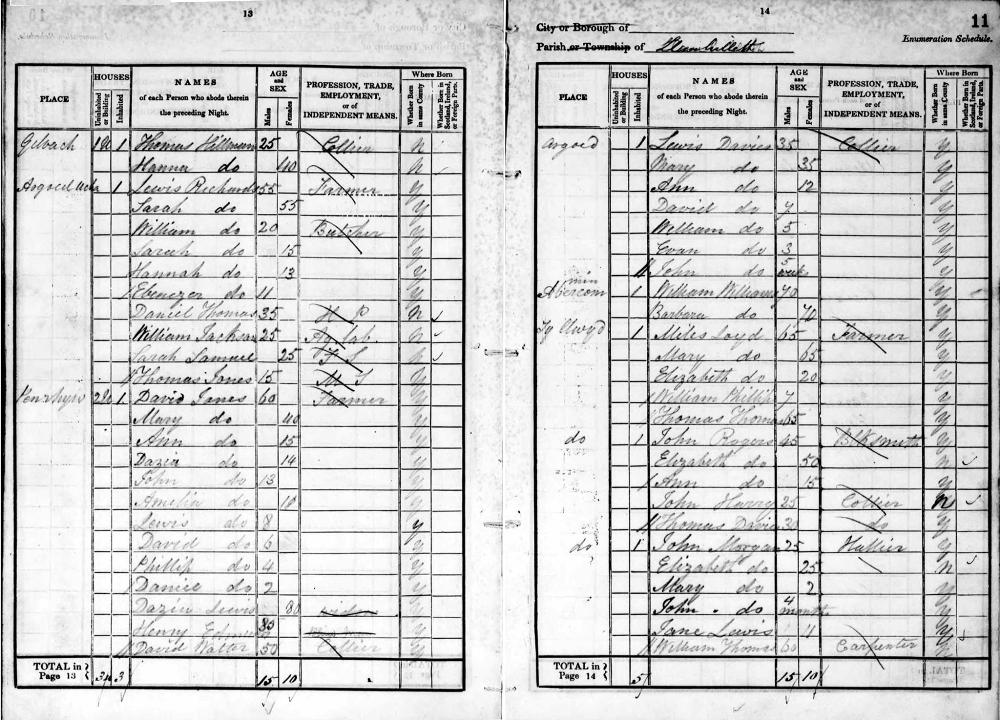 13
PLACE
HOUSES
Uninhabited or Building
Inhabited
NAMES
of each Person who abode therein the preceding Night.
AGE and SEX
Males
Females
PROFESSION, TRADE, EMPLOYMENT, or of INDEPENDENT MEANS.
Where Born
Whether Born in same County
Whether Born in Scotland, Ireland, or Foreign Parts.
1 Thomas Hillman 25 Collier N
Hanna do 40 N
Argoed 1 Lewis Richards 55 Farmer Y
Sarah do 55 Y
William do 20 Butcher Y
Sarah do 15 Y
Hannah do 13 Y
Ebenezer do 11 Y
Daniel Thomas 35 N
William Jackson 25 Ag lab N
Sarah Samuel 25 F S N
Thomas Jones 15 M S Y
Penrhyn 1 David Jones 60 Farmer Y
Mary do 40 Y
Ann do 15 Y
Dazia do 14 Y
John do 13 Y
Amelia do 10 Y
Lewis do 8 Y
David do 6 Y
Phillip do 4 Y
Daniel do 2 Y
Dazia Lewis 80 Y
Henry Y
David Walter 50 Collier Y
TOTAL in Page 13 3 15 10
14
11
City or Borough of
Parish or Township of
Enumeration Schedule.
PLACE
HOUSES
Uninhabited or Building
Inhabited
NAMES
of each Person who abode therein the preceding Night.
AGE and SEX
Males
Females
PROFESSION, TRADE, EMPLOYMENT, or of INDEPENDENT MEANS.
Where Born
Whether Born in same County
Whether Born in Scotland, Ireland, or Foreign Parts.
Argoed 1 Lewis Davies 35 Collier Y
Mary do 35 Y
Ann do 12 Y
David do 7 Y
William do 5 Y
Evan do 3 Y
John do 5 weeks Y
1 William Williams 70 Y
Barbara do 70 Y
1 Miles Loyd 65 Farmer Y
Mary do 65 Y
Elizabeth do 20 Y
William Phillip 7 Y
Thomas Thomas 65 Y
do 1 John Rogers 45 Blksmith Y
Elizabeth do 50 N
Ann do 15 Y
John Harry 25 Collier N
Thomas Davies 30 do Y
do 1 John Morgan 25 Hallier Y
Elizabeth do 25 N
Mary do 2 Y
John do 4 months Y
Jane Lewis 11 Y
William Thomas 60 Carpenter Y
TOTAL in Page 14 5 15 10